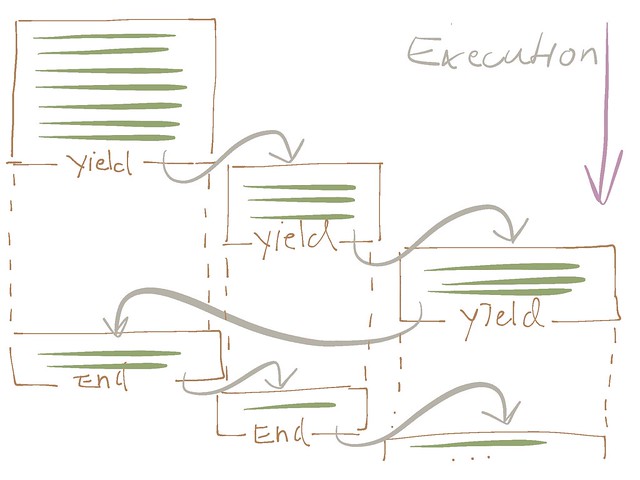 Execution
yield
yield
yield
End
End
...